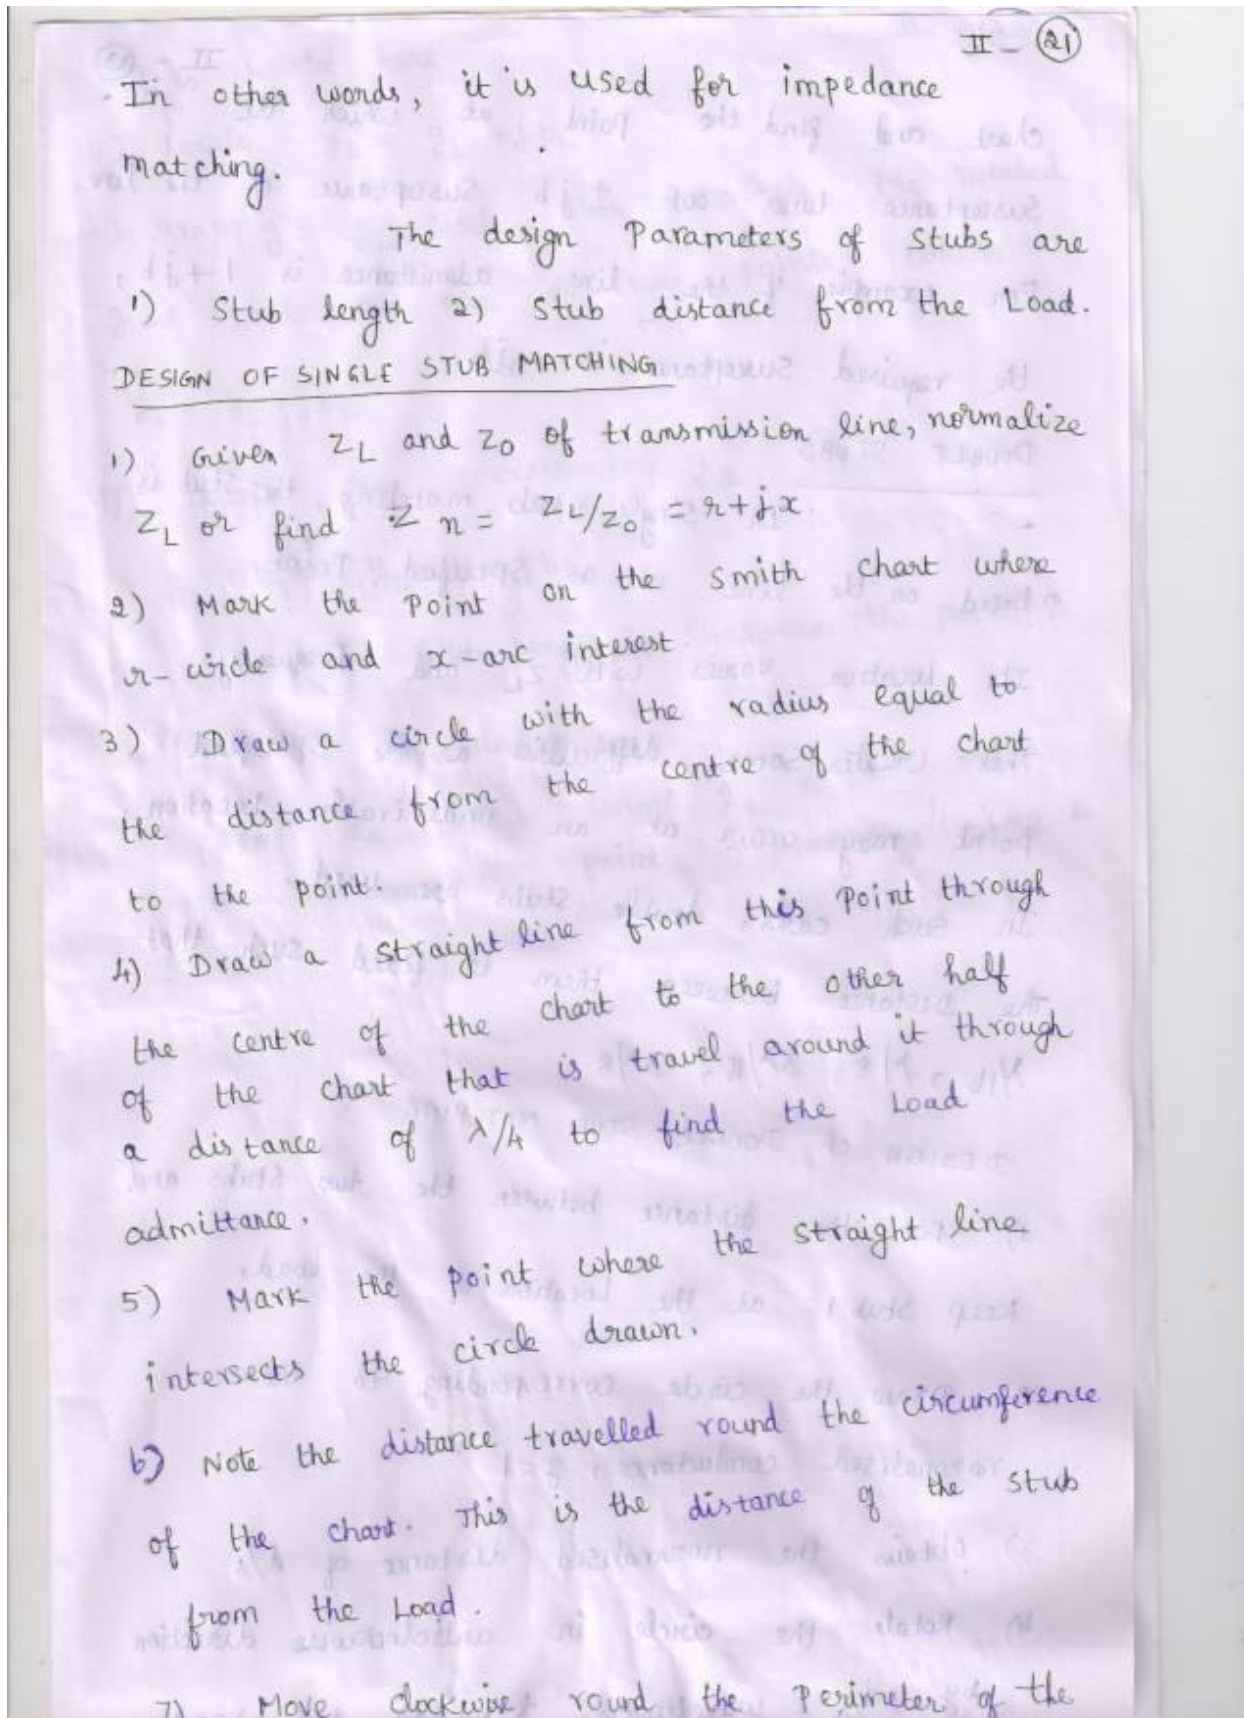 II - 21
In other words, it is used for impedance
matching.
The design Parameters of stubs are
1) Stub length 2) Stub distance from the Load.
DESIGN OF SINGLE STUB MATCHING
1) Given ZL and Z0 of transmission line, normalize
ZL or find Zn = ZL/Z0 = r+jx
2) Mark the Point on the smith chart where
r-circle and x-arc interest
3) Draw a circle with the radius equal to
the distance from the centre of the chart
to the point.
4) Draw a straight line from this Point through
the centre of the chart to the other half
of the chart that is travel around it through
a distance of λ/4 to find the Load
admittance.
5) Mark the point where the straight line
intersects the circle drawn.
6) Note the distance travelled round the circumference
of the chart. This is the distance of the stub
from the Load.
7) Move clockwise round the Perimeter of the